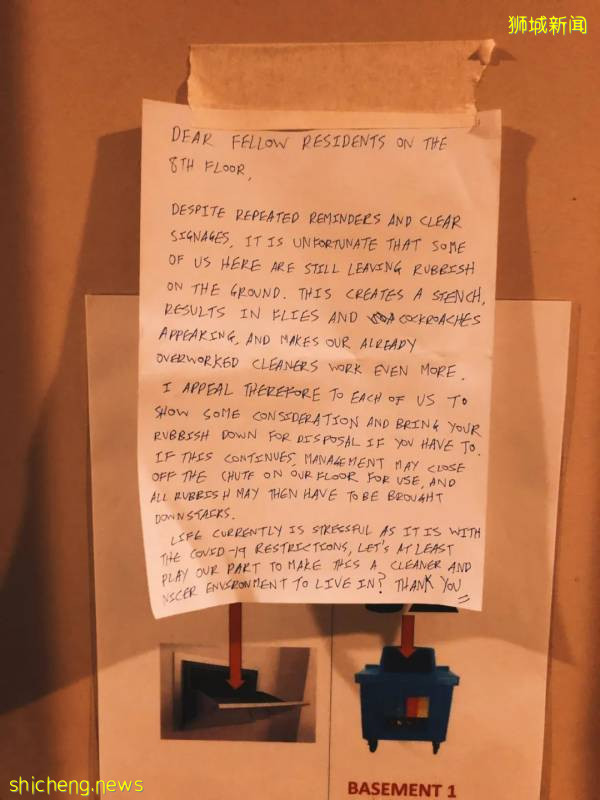 狮城新闻
DEAR FELLOW RESIDENTS ON THE
8TH FLOOR,
DESPITE REPEATED REMINDERS AND CLEAR
SIGNAGES, IT IS UNFORTUNATE THAT SOME
OF US HERE ARE STILL LEAVING RUBBISH
ON THE GROUND. THIS CREATES A STENCH,
RESULTS IN FLIES AND COCKROACHES
APPEARING, AND MAKES OUR ALREADY
OVERWORKED CLEANERS WORK EVEN MORE.
I APPEAL THEREFORE TO EACH OF US TO
SHOW SOME CONSIDERATION AND BRING YOUR
RUBBISH DOWN FOR DISPOSAL IF YOU HAVE TO.
IF THIS CONTINUES, MANAGEMENT MAY CLOSE
OFF THE CHUTE ON OUR FLOOR FOR USE, AND
ALL RUBBISH MAY THEN HAVE TO BE BROUGHT
DOWNSTAIRS.
LIFE CURRENTLY IS STRESSFUL AS IT IS WITH
THE COVID-19 RESTRICTIONS, LET'S AT LEAST
PLAY OUR PART TO MAKE THIS A CLEANER AND
NICER ENVIRONMENT TO LIVE IN? THANK YOU
BASEMENT 1
shicheng.news